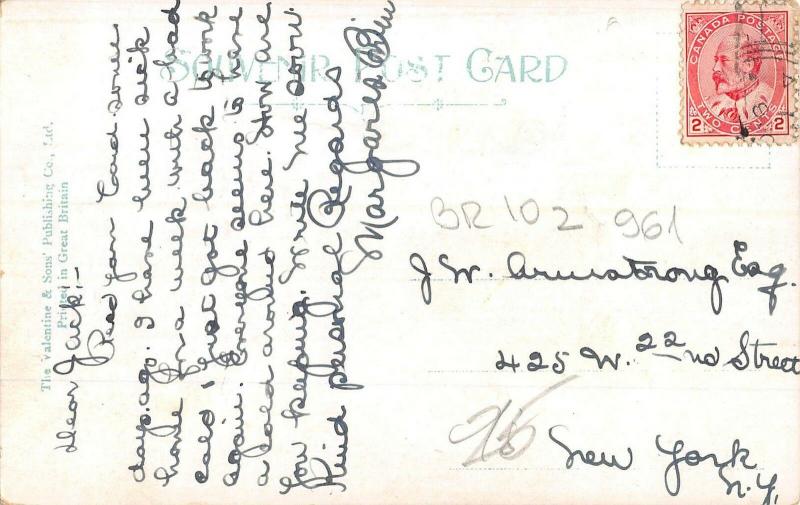 SOUVENIR POST CARD
CANADA POSTAGE
2 2
TWO CENTS
The Valentine & Sons' Publishing Co., Ltd.
Printed in Great Britain
Dear Jack:-
Read your Card some
days ago. I have been sick
home for a week with a bad
cold & just got back to work
again. Everyone seems to have
a cold around here. How are
you keeping. Write me soon.
Kind personal Regards
Margaret
BR 102-961
J. W. Armstrong Esq.
425 W. 22nd Street
New York
N.Y.